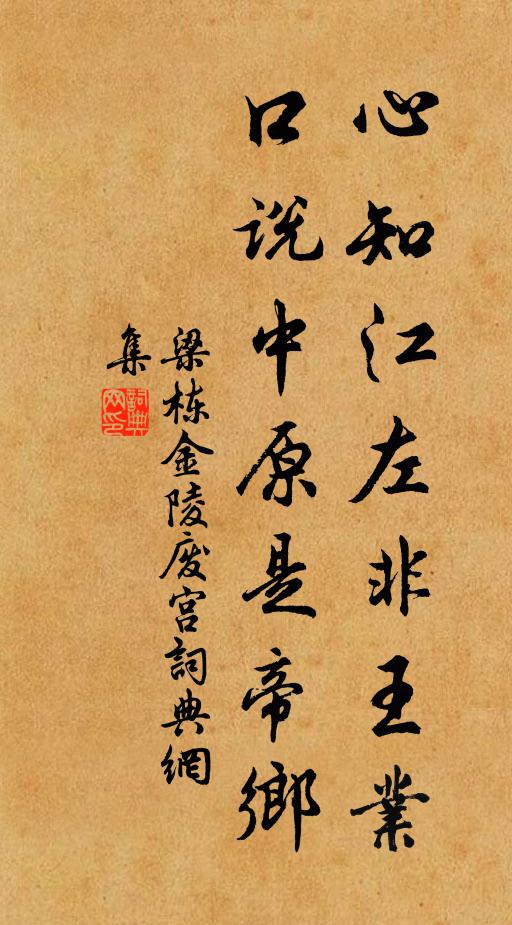 心知江左非王業
口说中原是帝鄉
梁栋金陵废宫詞典網
集
詞典
网印